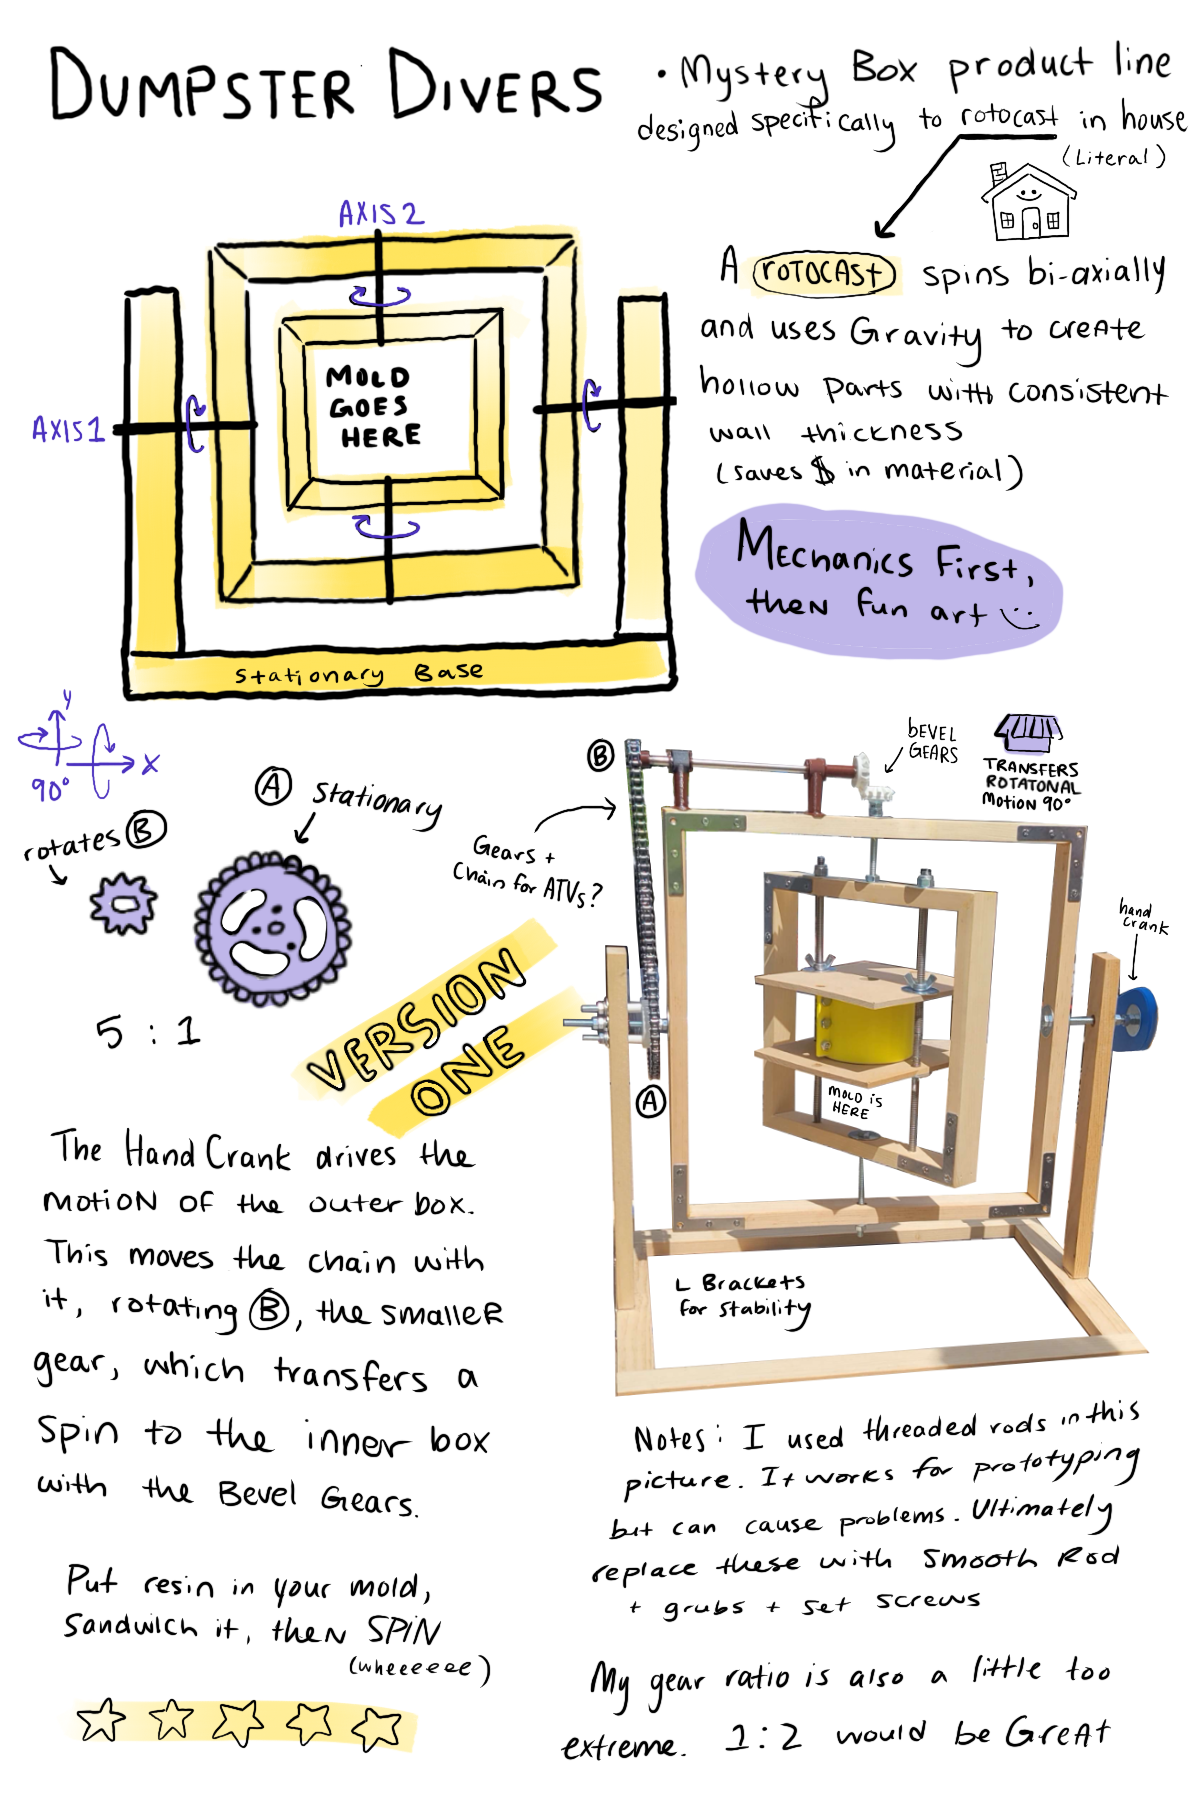 DUMPSTER DIVERS
• Mystery Box product line
designed specifically to rotocast in house
(Literal)
AXIS 2
AXIS 1
MOLD
GOES
HERE
Stationary Base
A rOTOCASt spins bi-axially
and uses Gravity to creAte
hollow parts with consistent
wall thickness
(saves $ in material)
MEchanics First,
then fun art
y
x
90°
rotates B
A Stationary
5 : 1
VERSION
ONE
B
bEVEL
GEARS
TRANSFERS
ROTATONAL
Motion 90°
Gears +
Chain for ATVs?
hand
crank
A
MOLD is
HERE
L Brackets
for stability
The Hand Crank drives the
motion of the outer box.
This moves the chain with
it, rotating B, the smaller
gear, which transfers a
spin to the inner box
with the Bevel Gears.
Put resin in your mold,
Sandwich it, then SPIN
(wheeeeee)
Notes: I used threaded rods in this
picture. It works for prototyping
but can cause problems. Ultimately
replace these with smooth Rod
+ grubs + set screws
My gear ratio is also a little too
extreme. 1:2 would be GreAt